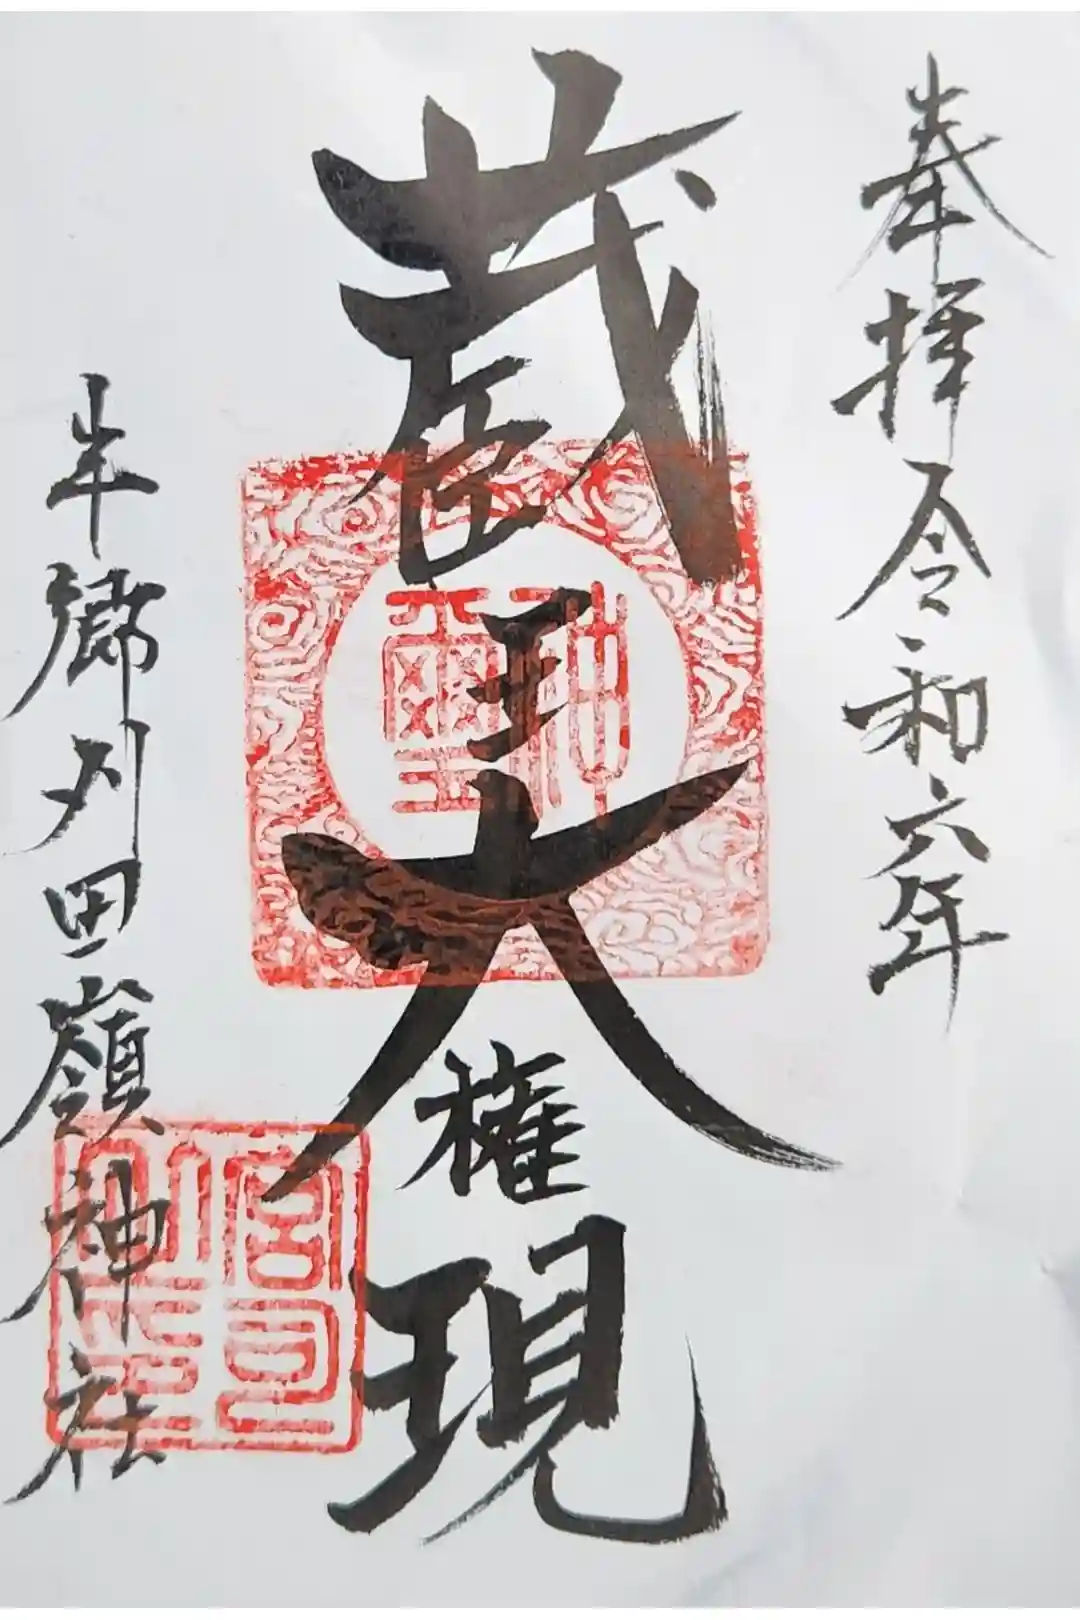 奉拝 令和六年
蔵王大権現
半郷 刈田嶺神社
神璽
宮司之印